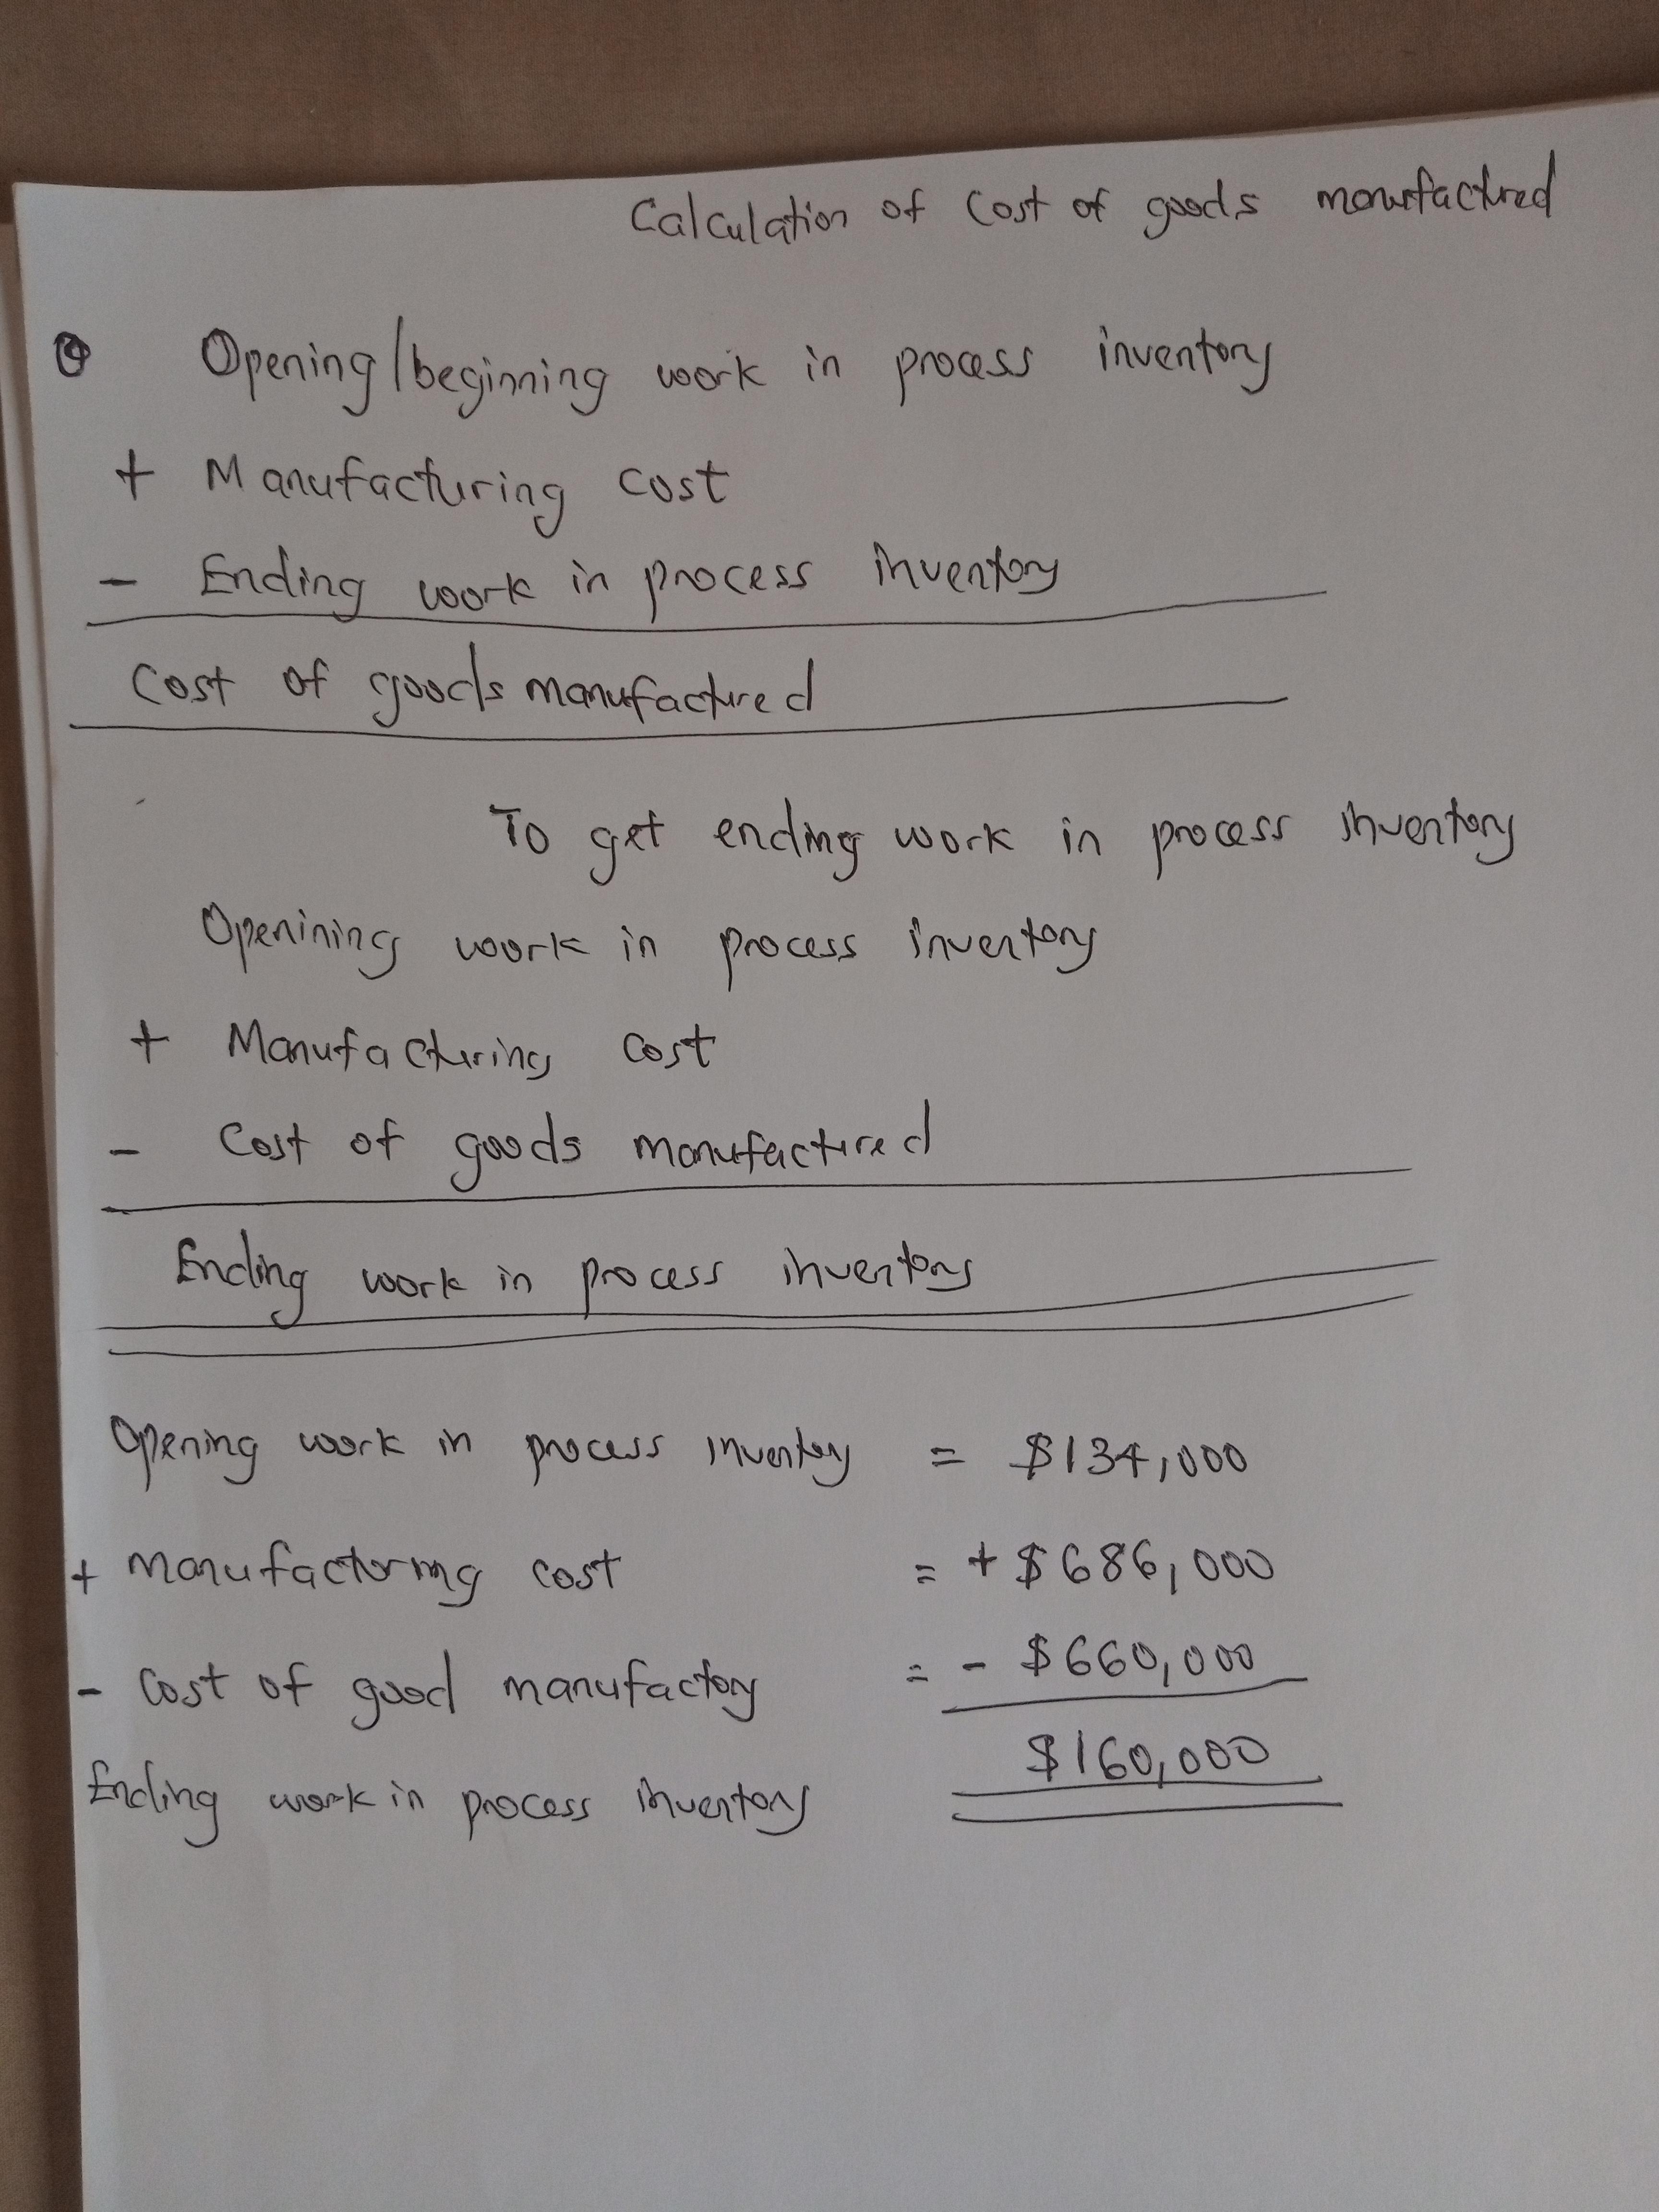 Calculation of Cost of goods manufactured
Opening/beginning work in process inventory
+ Manufacturing cost
- Ending work in process inventory
Cost of goods manufactured
To get ending work in process inventory
Openining work in process inventory
+ Manufacturing cost
- Cost of goods manufactured
Ending work in process inventory
Opening work in process inventory = $134,000
+ Manufacturing cost = + $686,000
- Cost of good manufactory = - $660,000
Ending work in process inventory $160,000